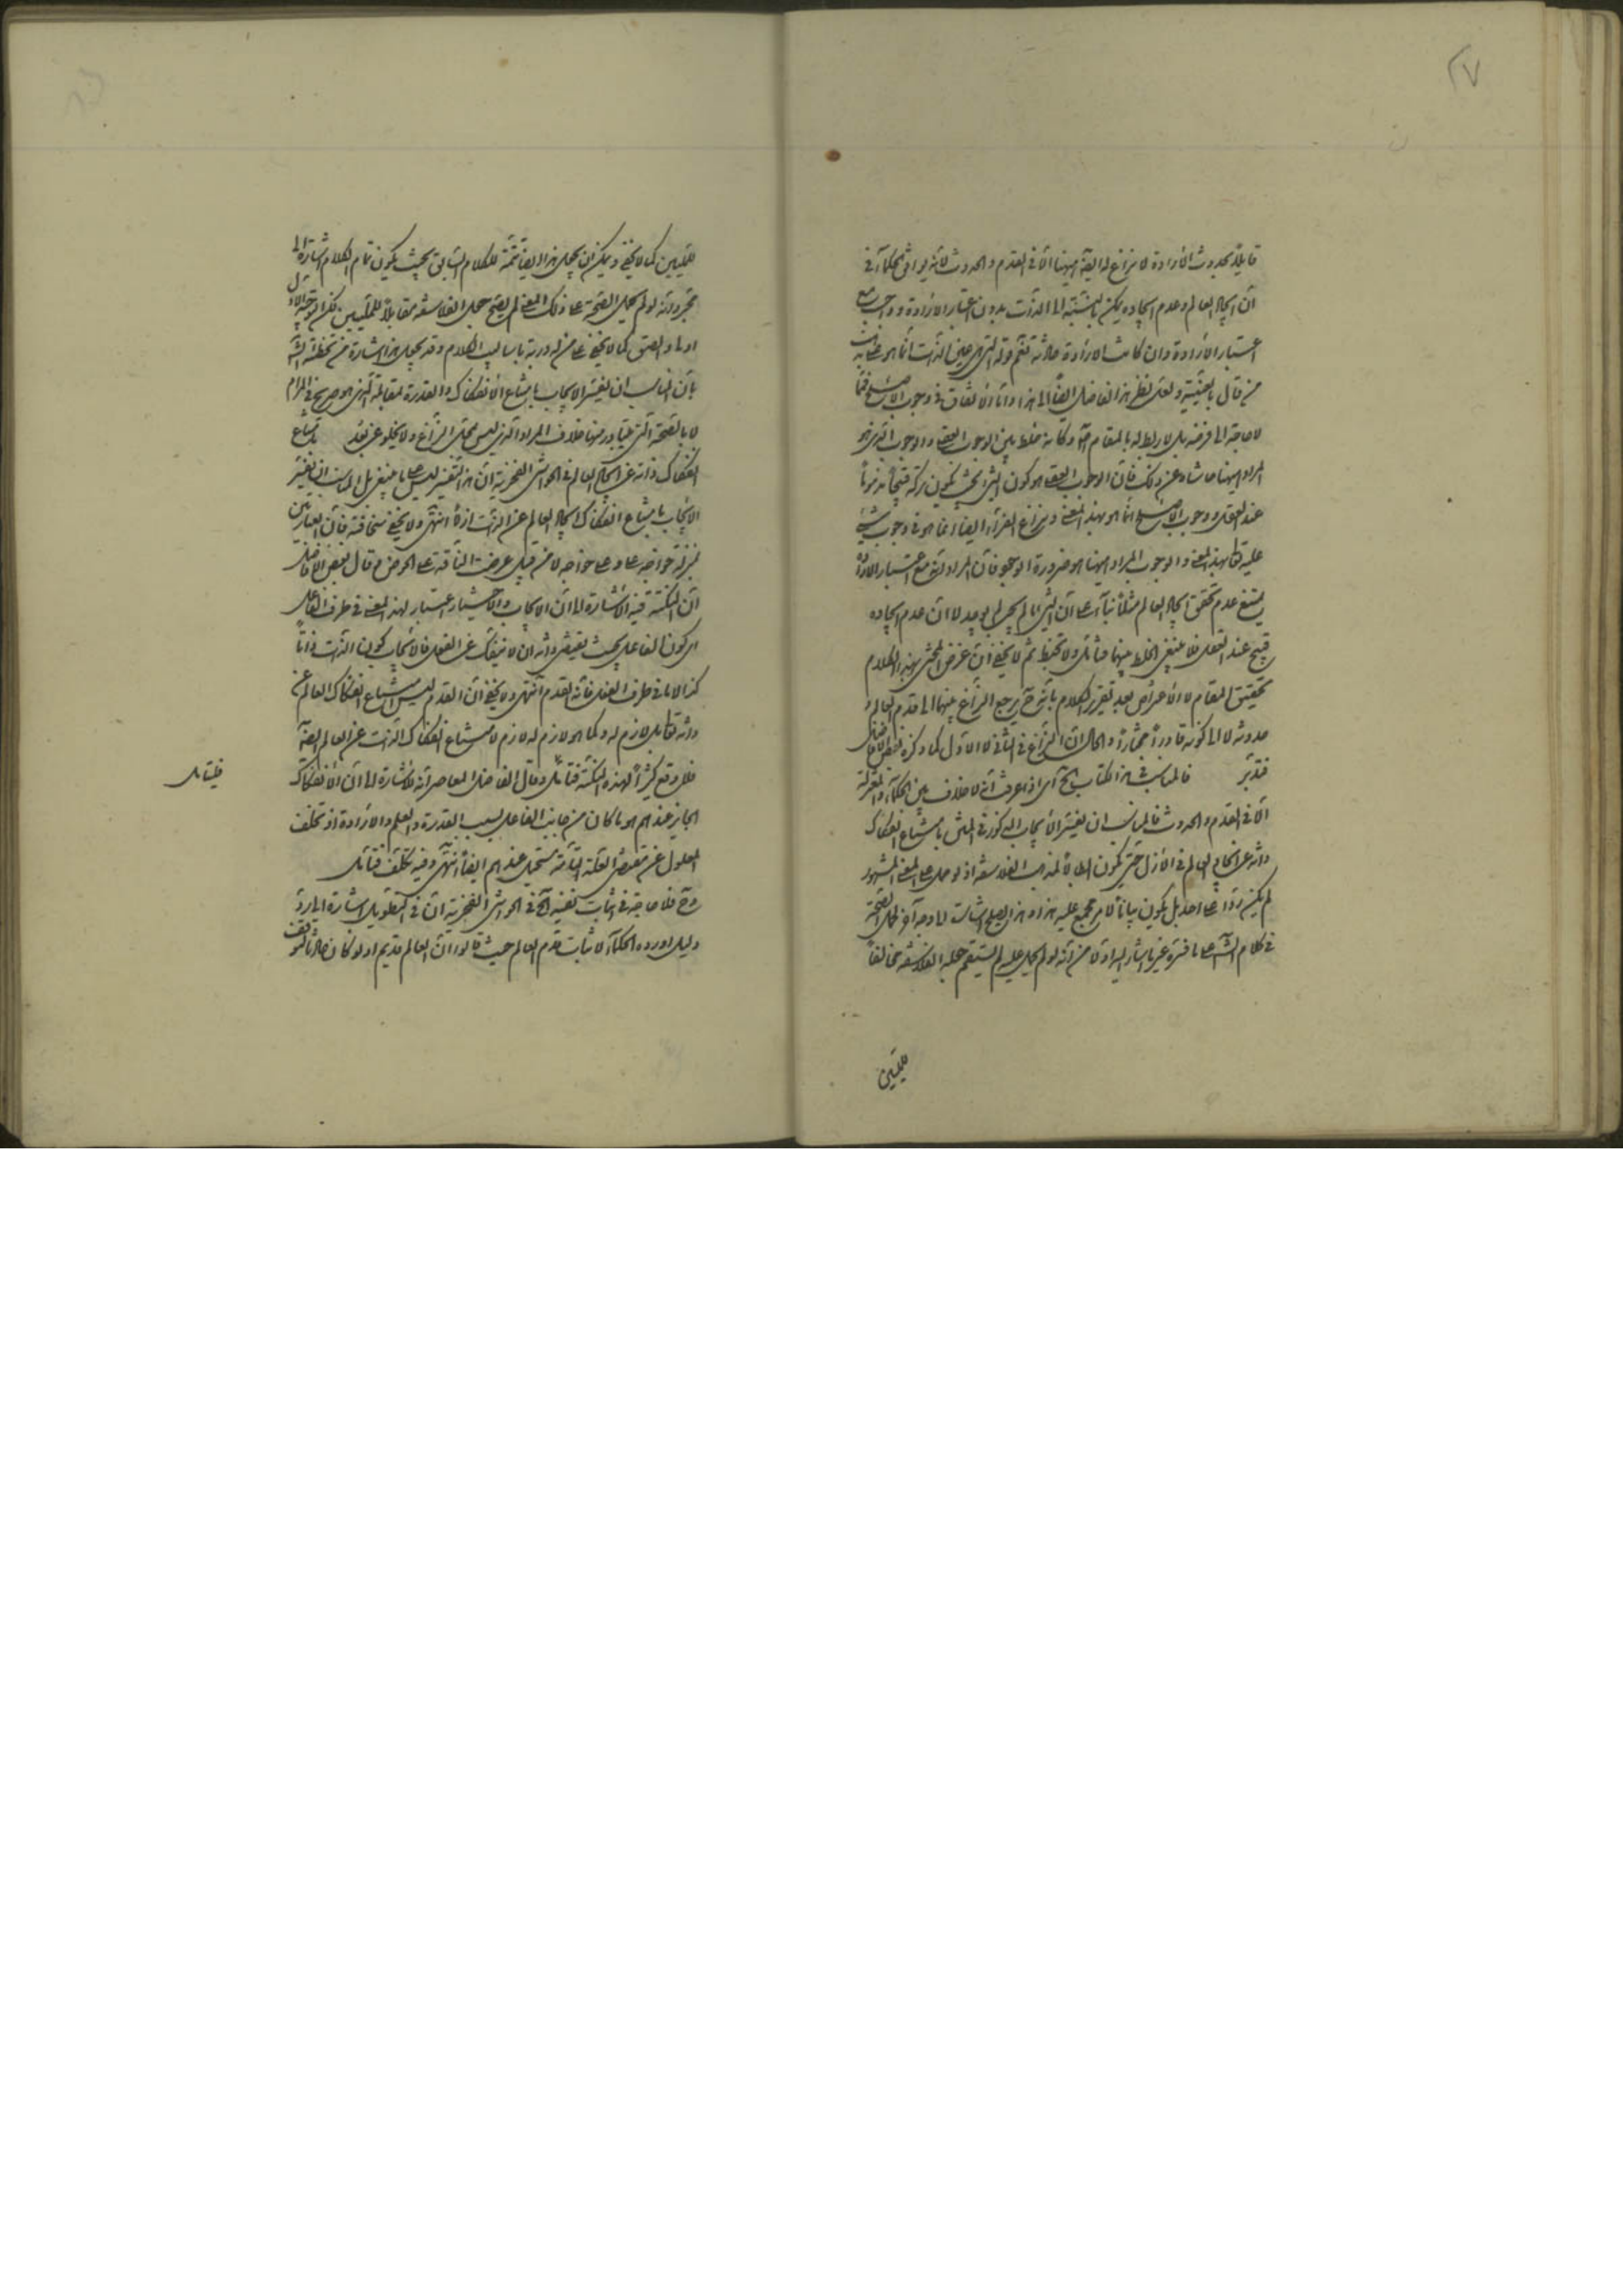 ٢٧
قايلا بحدوث الارادة لا نزاع له ايضا ههنا الا فى القدم والحدوث لانه يوافق الحكماء فى
ان ايجاد العالم وعدم ايجاده يمكن بالنسبة الى الذات بدون اعتبار الارادة وواجب مع
اعتبار الارادة وان كانت الارادة حادثة ثم قوله التى هى عين الذات انما هو على مذهب
من قال بالعينية ولعل نظر هذا الفاضل ايضا الى هذا واما الاتفاق فى وجوب الاصلح فما
لا حاجة الى فرضه بل لا ربط له بالمقام وكانه خلط بين الوجوب العقلى والوجوب الذى هو
المراد ههنا حاشاه عن ذلك فان الوجوب العقلى هو كون الشئ بحيث يكون تركه قبيحا مذموما
عند العقل ووجوب الاصلح انما هو بهذا المعنى ونزاع ايضا انما هو فى وجوب شئ
عليه تعالى بهذا المعنى والوجوب المراد ههنا هو ضرورة الوجود فان المراد انه مع اعتبار الارادة
يمتنع عدم تحقق ايجاد العالم مثلا بناء على ان الشئ ما لم يجب لم يوجد لا ان عدم ايجاده
قبيح عند العقل فلا ينبغى الخلط بينهما فتأمل ولا تخبط ثم لا يخفى ان غرض المحشى بهذا الكلام
تحقيق المقام لا الاعتراض بعد تقرير الكلام بانه ح يرجع النزاع بينهما الى قدم العالم و
حدوثه لا الى كونه قادرا مختارا والحال ان النزاع فى الثانى لا الاول كما ذكره بعض الافاضل
فتدبر فالمناسب فى هذا الكتاب الخ اى اذا عرفت انه لا خلاف بين الحكماء والمعتزلة
الا فى القدم والحدوث فالمناسب ان يفسر الايجاب المذكور فى المتن بامتناع انفكاك
ذاته عن ايجاد العالم فى الازل حتى يكون ابطالا لمذهب الفلاسفة اذ لو حمل على المعنى المشهور
لم يكن ردا على احد بل يكون بيانا لامر مجمع عليه هذا وهذا يصلح اشارة الى وجه آخر لحمل الصحة
فى كلام الشه على ما فسره غير ما اشار اليه اولا من انه لو لم يحمل عليه لم يستقم جعله الفلاسفة مخالفا
للمليين
للمليين كما لا يخفى ويمكن ان يجعل هذا ايضا تتمة للكلام السابق بحيث يكون تمام الكلام اشارة الى
مجرد انه لو لم يحمل الصحة على ذلك المعنى لم يصح جعل الفلاسفة مقابلا للمليين لكن التوجيه الاول
اولى والصق كما لا يخفى على من له دربة باساليب الكلام وقد يجعل هذا اشارة من تخطئة الشه
بان المناسب ان يفسر الايجاب بامتناع الانفكاك والقدرة بمقابله الذى هو صريح فى المرام
لا بالصحة التى يتبادر منها خلاف المراد الذى ليس محل النزاع ولا يخلو عن بعد بامتناع
انفكاك ذاته عن ايجاد العالم فى الحواشى الفخرية ان هذا التفسير ليس على ما ينبغى بل المناسب ان يفسر
الايجاب بامتناع انفكاك ايجاد العالم عن الذات ازلا انتهى ولا يخفى سخافته فان العبارتين
بمنزلة خواجه على وعلى خواجه لا من قبيل عرضت الناقة على الحوض وقال بعض الافاضل
ان النكتة فيه الاشارة الى ان الايجاب والاختيار اعتبار لهذا المعنى فى طرف الفاعل
اى كون الفاعل بحيث يقتضى ذاته ان لا ينفك عن الفعل فالايجاب كون الذات ذاتا
كذا لا ما فى طرف الفعل فانه القدم انتهى ولا يخفى ان القدم ليس امتناع انفكاك العالم عن
ذاته تعالى بل لازم له وكما هو لازم له لازم لامتناع انفكاك الذات عن العالم ايضا
فلا وقع كثيرا لهذه النكتة فتأمل وقال الفاضل المعاصر انه للاشارة الى ان الانفكاك
فليتأمل
الجايز عندهم هو ما كان من جانب الفاعل بسبب القدرة والعلم والارادة اذ تخلف
المعلول عن مقتضى العلة التامة مستحيل عندهم ايضا انتهى وفيه تكلف فتأمل
وح فلا حاجة فى اثبات نفيه الخ فى الحواشى الفخرية ان فى التطويل اشارة الى رد
دليل اورده الحكماء لاثبات قدم العالم حيث قالوا ان العالم قديم اذ لو كان حادثا لتوقف